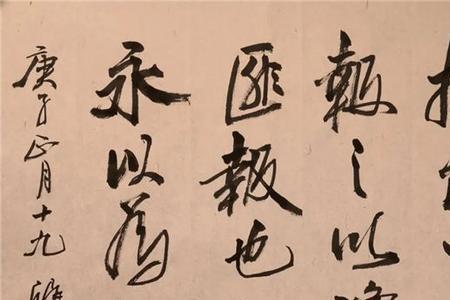 報之以
匪報也
永以為
庚子正月十九